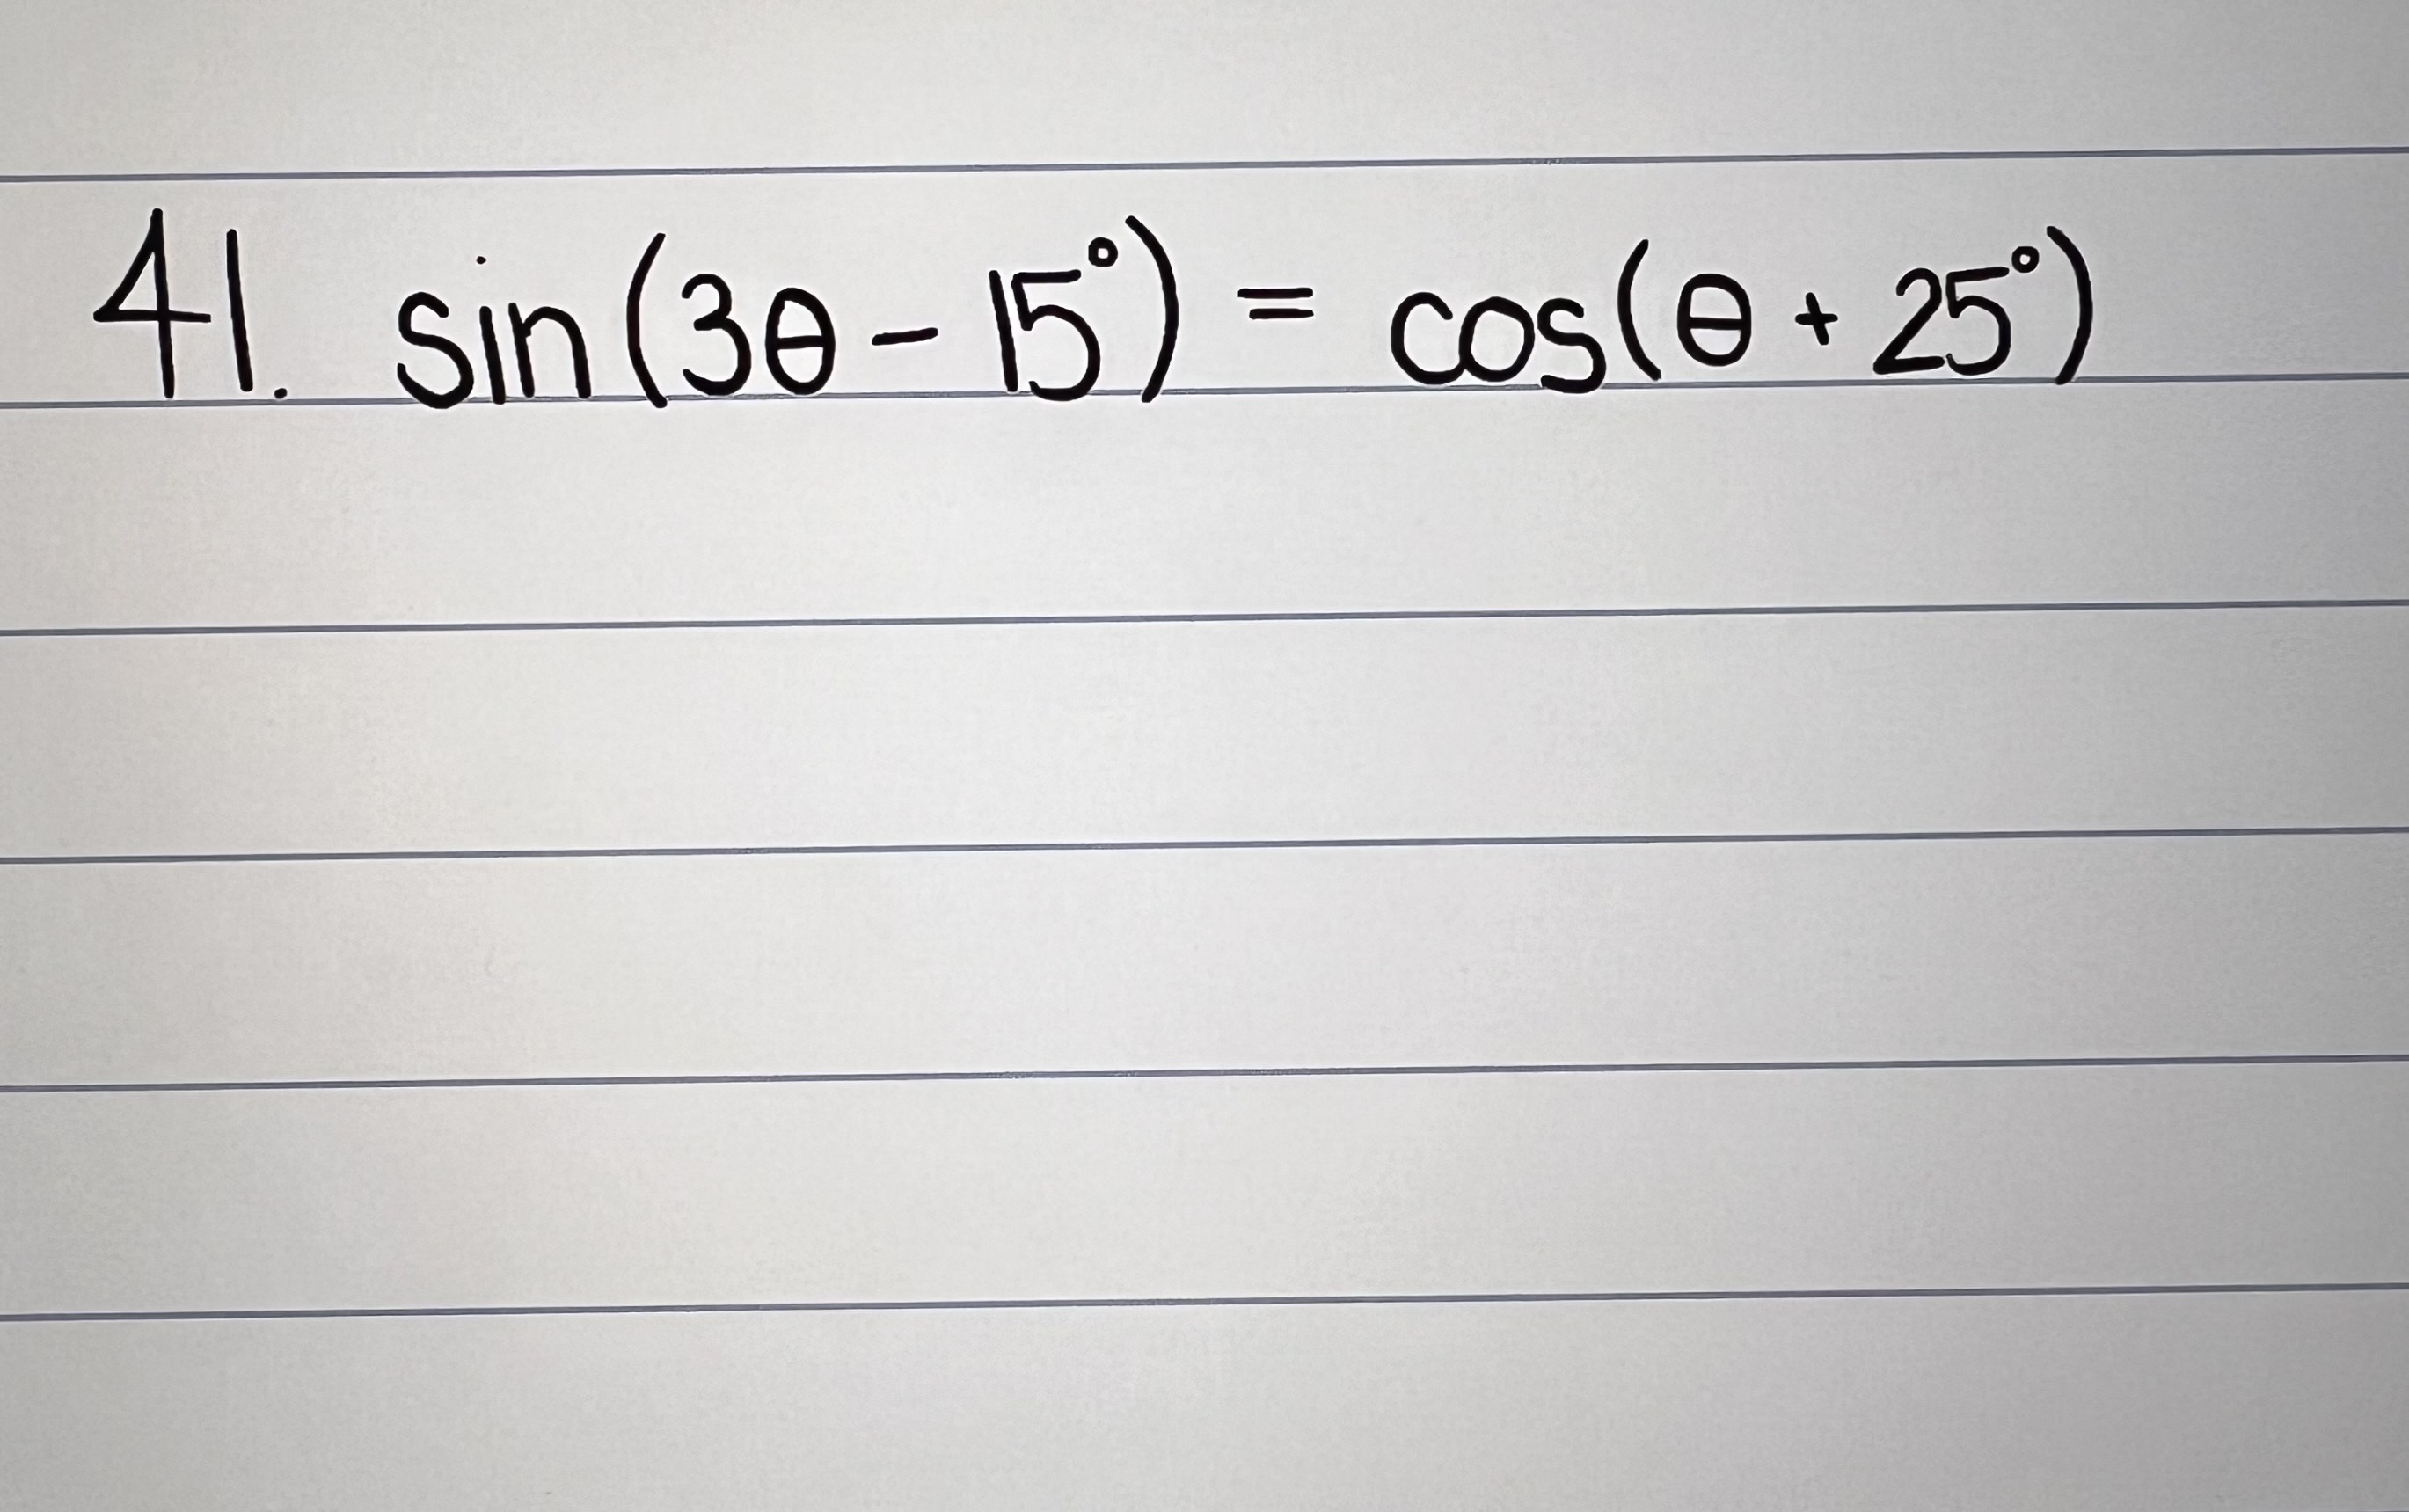 41. sin(3θ - 15°) = cos(θ + 25°)